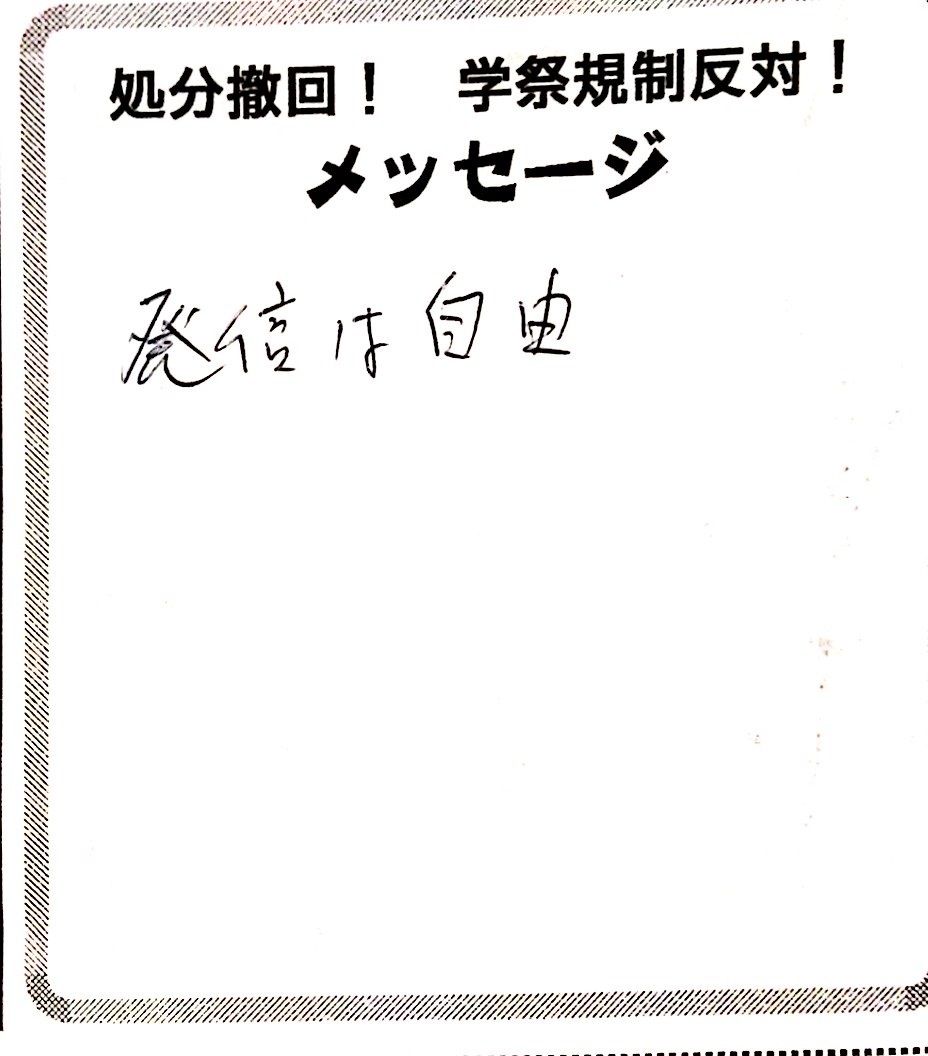 処分撤回！　学祭規制反対！
メッセージ
発信は自由